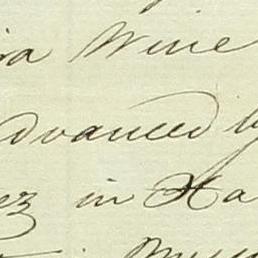 ra Wine
advanced by
ez in Ha